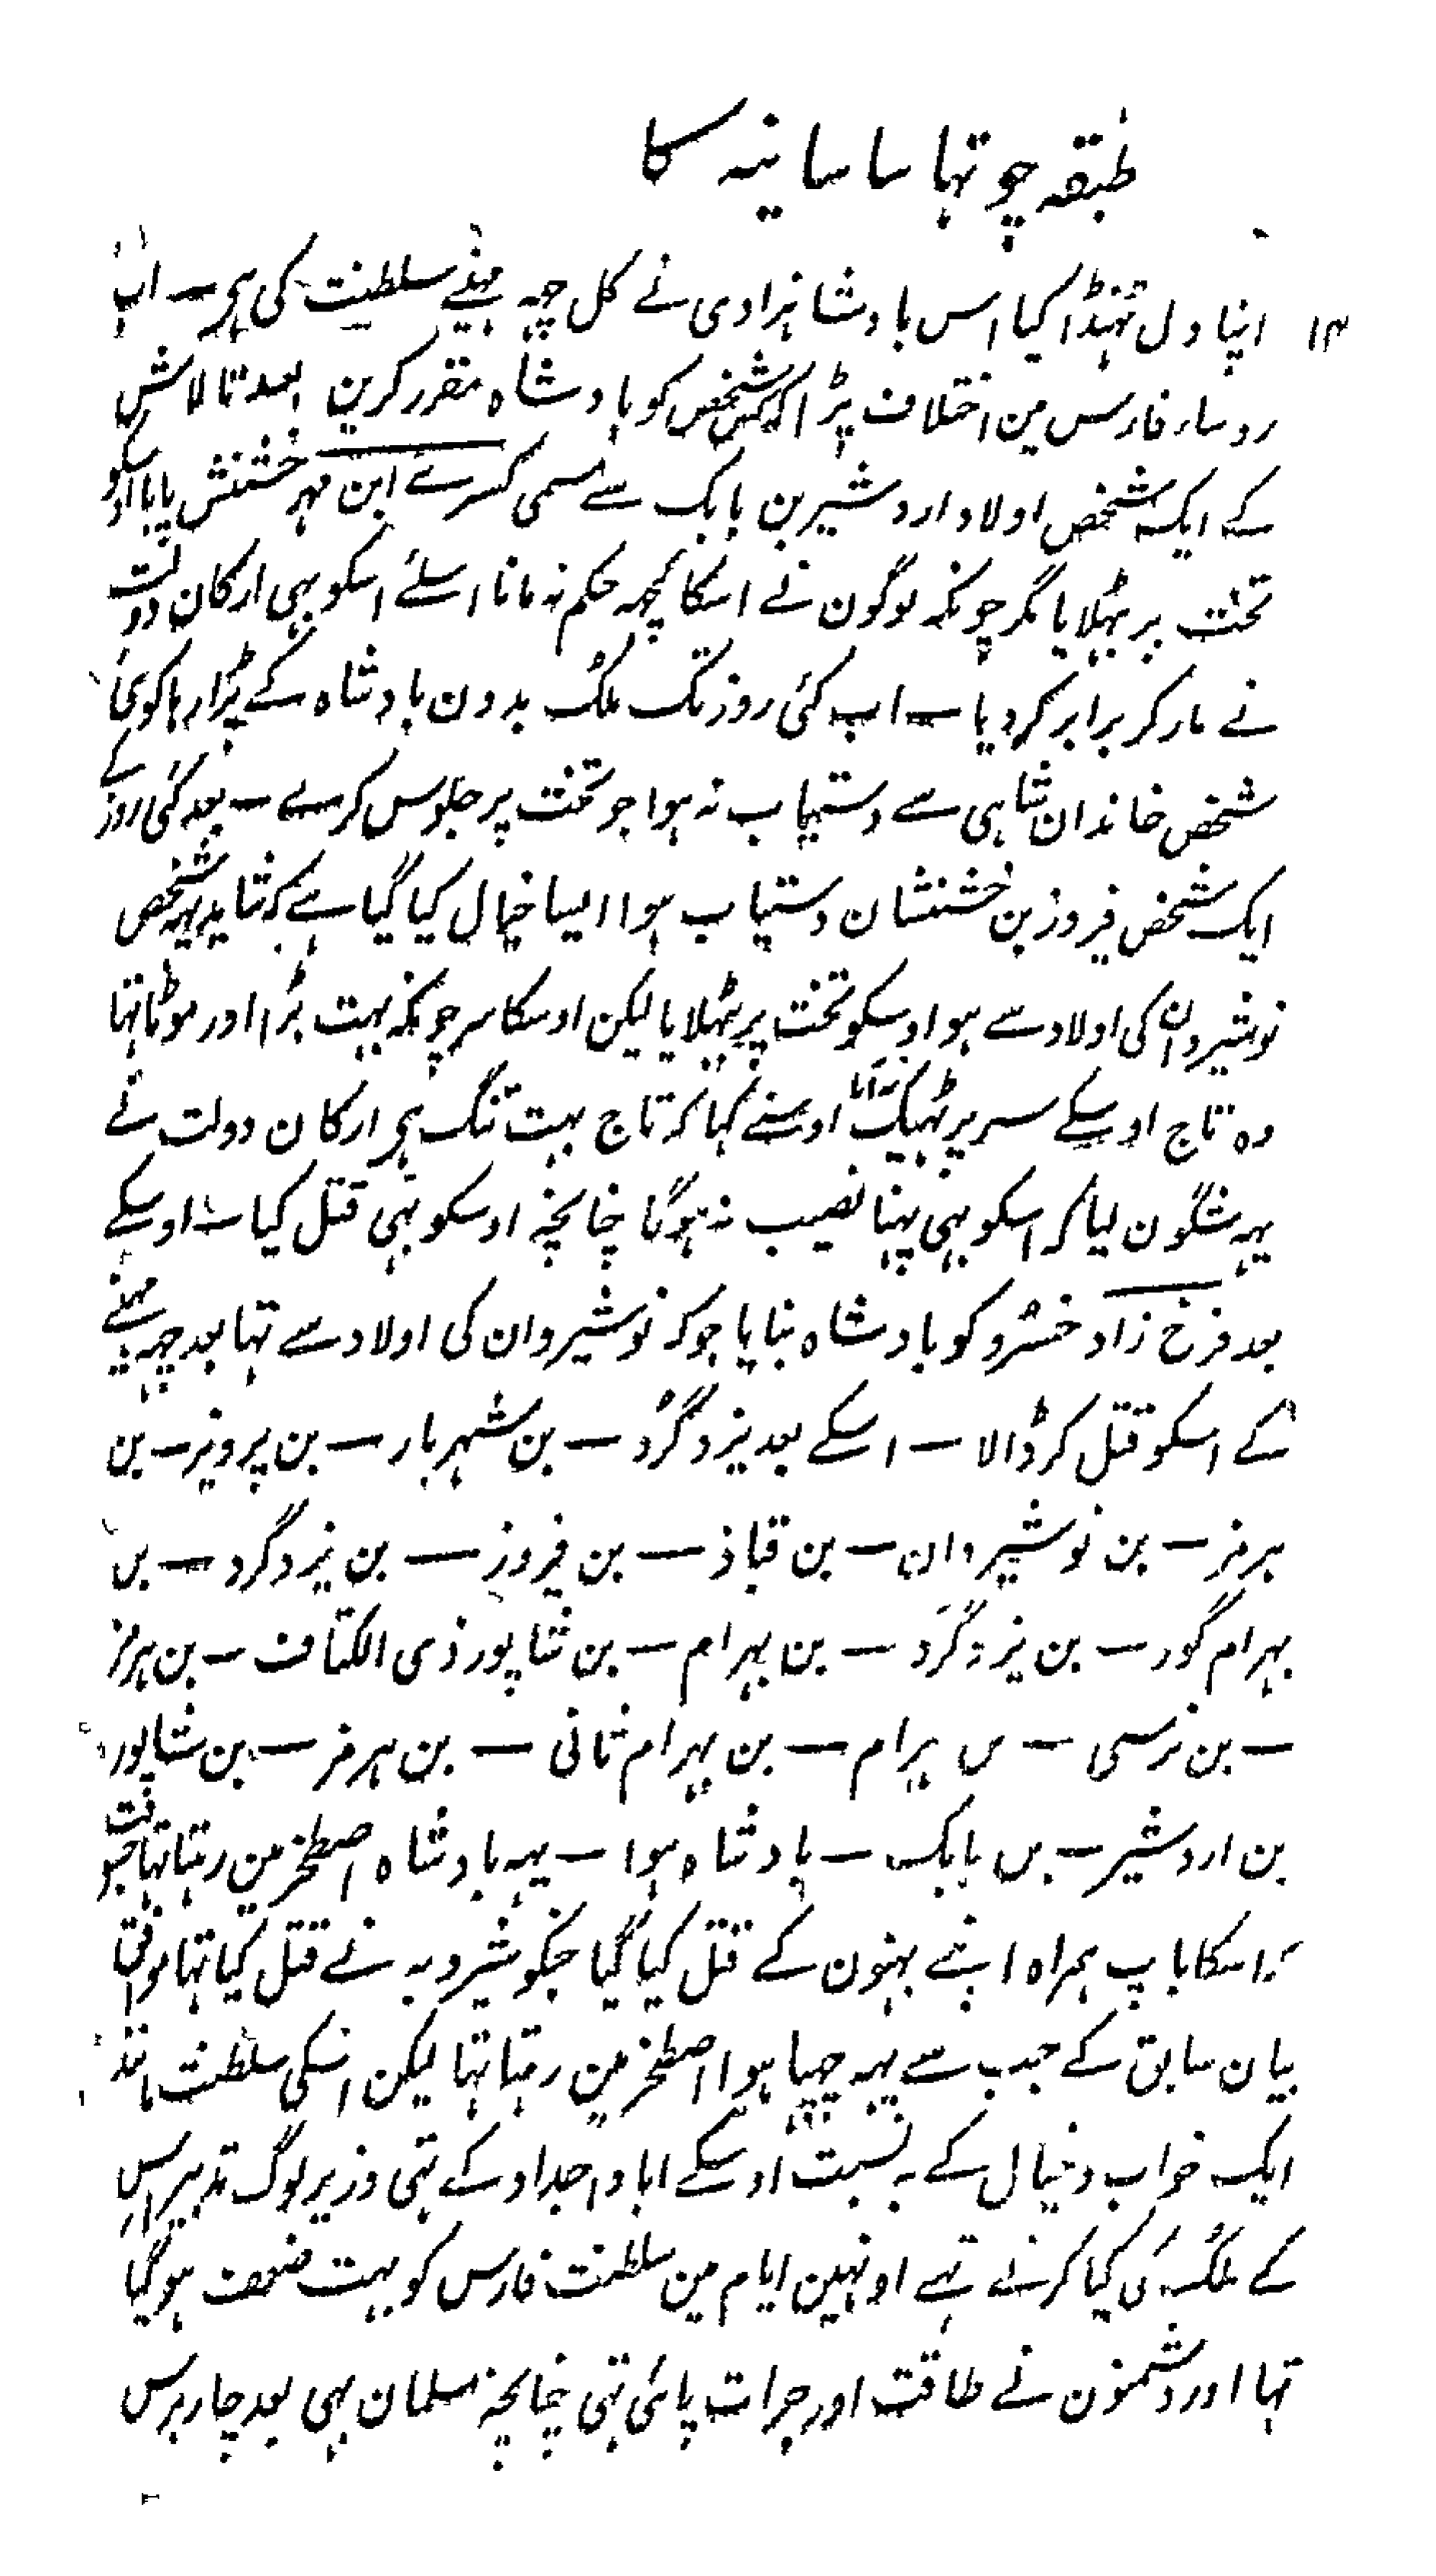 طبقہ چوتہا ساسانیہ کا
۱۴ اپنا دل ٹہنڈا کیا اس بادشاہزادی نے کل چہہ مہینے سلطنت کی ہے ــ اب
روسار فارس مین اختلاف پڑا کہ کس شخص کو بادشاہ مقرر کرین بعد تالاش
کے ایک شخص اولاد اردشیر بن بابک سے مسمی کسرےٰ ابن مہر خشنش پایا اوسکو
تخت پر بہٹلایا مگر چونکہ لوگون نے اسکا کچہہ حکم نہ مانا اسلئے اسکو بہی ارکان دولت
نے مار کر برابر کر دیا ــ اب کئی روز تک ملک بدون بادشاہ کے پڑا رہا کوئی
شخص خاندان شاہی سے دستیاب نہ ہوا جو تخت پر جلوس کرے ــ بعد کئی روز کے
ایک شخص فیروز بن خشنشان دستیاب ہوا ایسا خیال کیا گیا ہے کہ شاید یہہ شخص
نوشیروان کی اولاد سے ہو اوسکو تخت پر بہٹلایا لیکن اوسکا سر چونکہ بہت بڑا اور موٹا تہا
وہ تاج اوسکے سر پر ٹہیک نہ آیا اوسنے کہا کہ تاج بہت تنگ ہی ارکان دولت نے
یہہ شگون لیا کہ اسکو بہی پہننا نصیب نہ ہوگا چنانچہ اوسکو بہی قتل کیا ــ اوسکے
بعد فرخ زاد خسرو کو بادشاہ بنایا جو کہ نوشیروان کی اولاد سے تہا بعد چہہ مہینے
کے اسکو قتل کر ڈالا ــ اسکے بعد یزدگرد ــ بن شہریار ــ بن پرویز ــ بن
ہرمز ــ بن نوشیروان ــ بن قباذ ــ بن فیروز ــ بن یزدگرد ــ بن
بہرام گور ــ بن یزدگرد ــ بن بہرام ــ بن شاپور ذی الاکتاف ــ بن ہرمز
ــ بن نرسی ــ بن بہرام ــ بن بہرام ثانی ــ بن ہرمز ــ بن شاپور
بن اردشیر ــ بن بابک ــ بادشاہ ہوا ــ یہہ بادشاہ اصطخر مین رہتا تہا جبوقت
کہ اسکا باپ ہمراہ اپنے بہنون کے قتل کیا گیا جنکو شیرویہ نے قتل کیا تہا موافق
بیان سابق کے جب سے یہہ چہپا ہوا اصطخر مین رہتا تہا لیکن اسکی سلطنت مانند
ایک خواب و خیال کے بہ نسبت اوسکے ابا و اجداد کے تہی وزیر لوگ تدبیر اس
کے ملک کی کیا کرتے تہے اونہین ایام مین سلطنت فارس کو بہت ضعف ہو گیا
تہا اور دشمنون نے طاقت اور جرات پائی تہی چنانچہ مسلمان بہی بعد چار برس